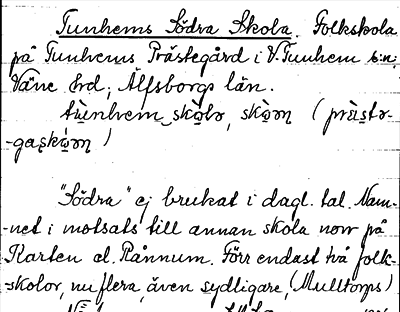 Tunhems Södra Skola. Folkskola
på Tunhems Prästegård i V. Tunhem s:n;
Väne hd; Älfsborgs län.

"Södra" ej brukat i dagl. tal. Nam-
-net i motsats till annan skola norr på
Karten el. Rånnum. Förr endast två folk-
-skolor, nu flera, även sydligare, (Mulltorps)